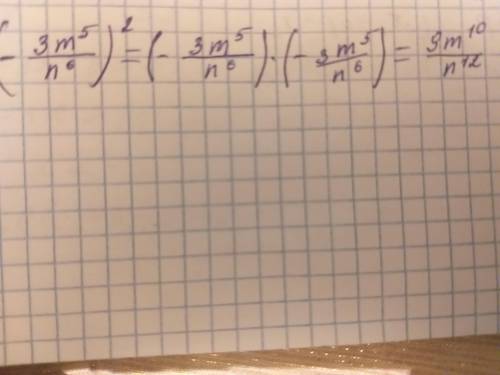 (- 3m⁵/n⁶)² = (- 3m⁵/n⁶) · (- 3m⁵/n⁶) = 9m¹⁰/n¹²